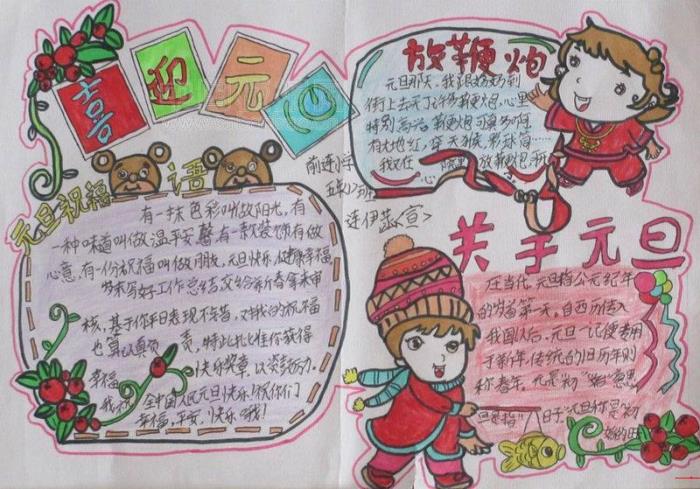 喜迎元旦
元旦祝福语
有一抹色彩叫做阳光，有
一种味道叫做温馨，有一款装饰有做
心意，有一份祝福叫做朋友，元旦快乐，健康幸福
岁末写好工作总结交给新春拿来审
核，基于你平日表现不错，对我的祝福
也算认真负责，特此批准你获得
快乐奖章，以资
幸福
我祝全中国人民元旦快乐！祝你们
幸福，平安，快乐哦！
前连小学
连伊
放鞭炮
元旦那天，我跟妈妈到
街上去买了许多鞭炮，心里
特别高兴。鞭炮可真多啊，
有大地红，穿天猴，彩球筒……
我又在院里放鞭炮，开
心
关于元旦
在当代，元旦指公元纪年
的岁首第一天，自西历传入
我国以后，元旦一词便专用
于新年，传统的旧历年则
称春年。元是“初”“始”意思
旦是指“日子”元旦称是“初
始的日